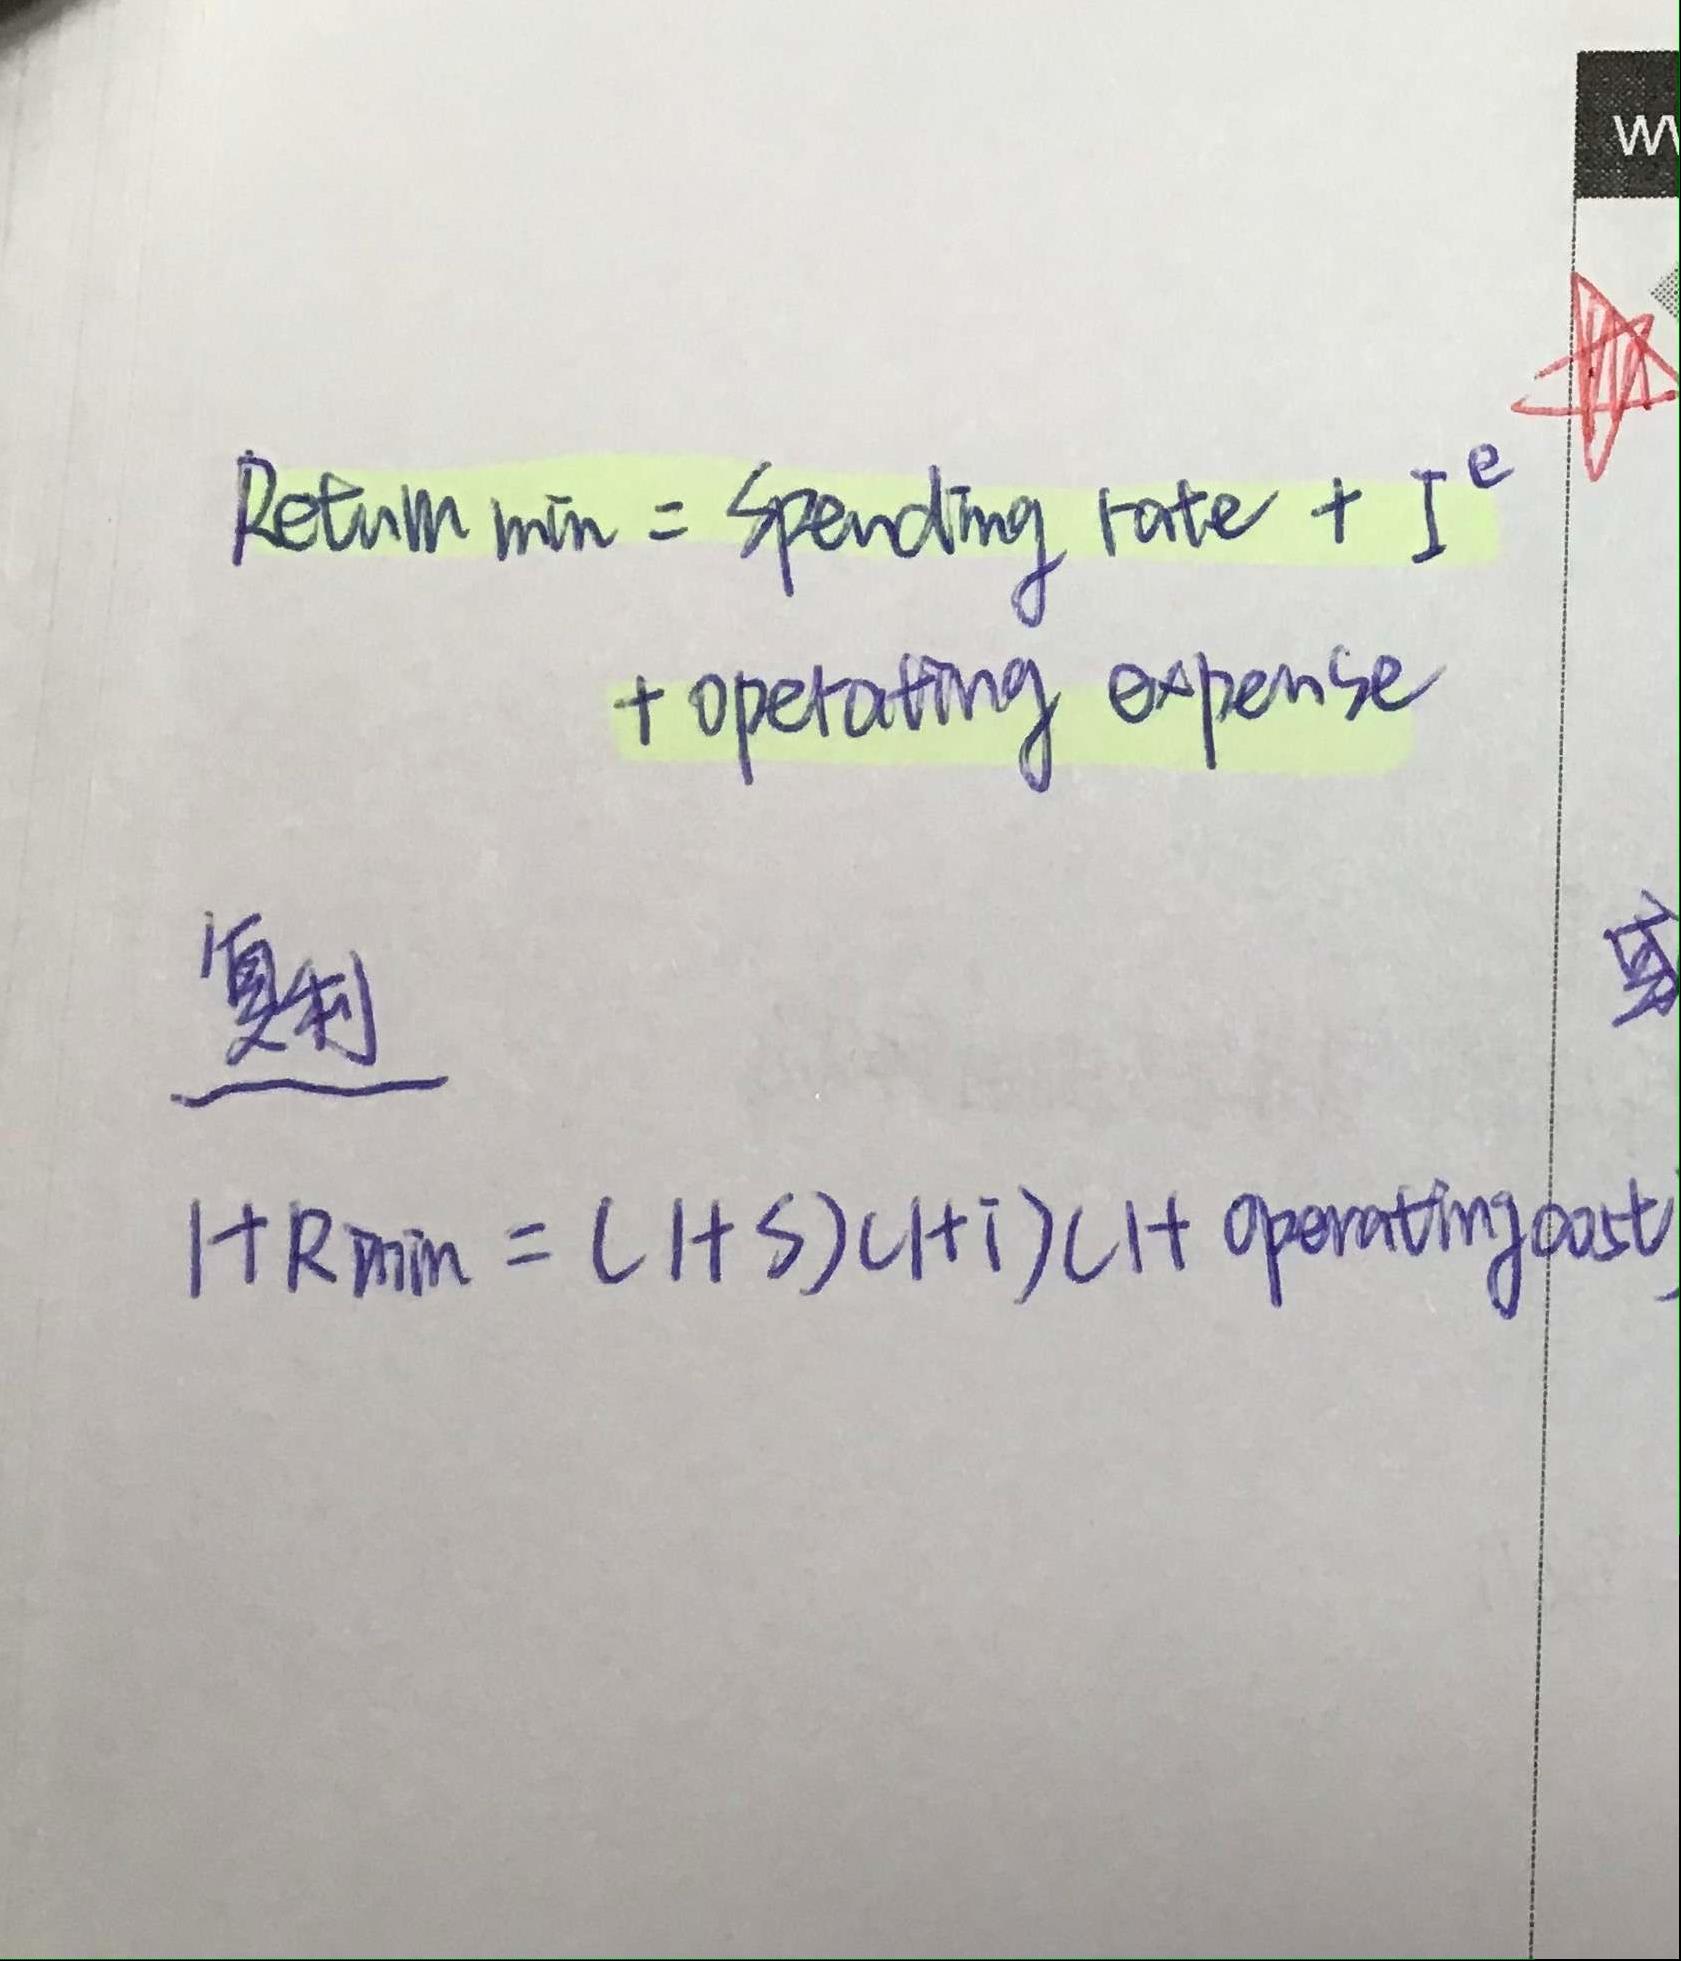 Return min = Spending rate + I^e
+ operating expense
复利
1+Rmin = (1+S)(1+i)(1+ operating cost)